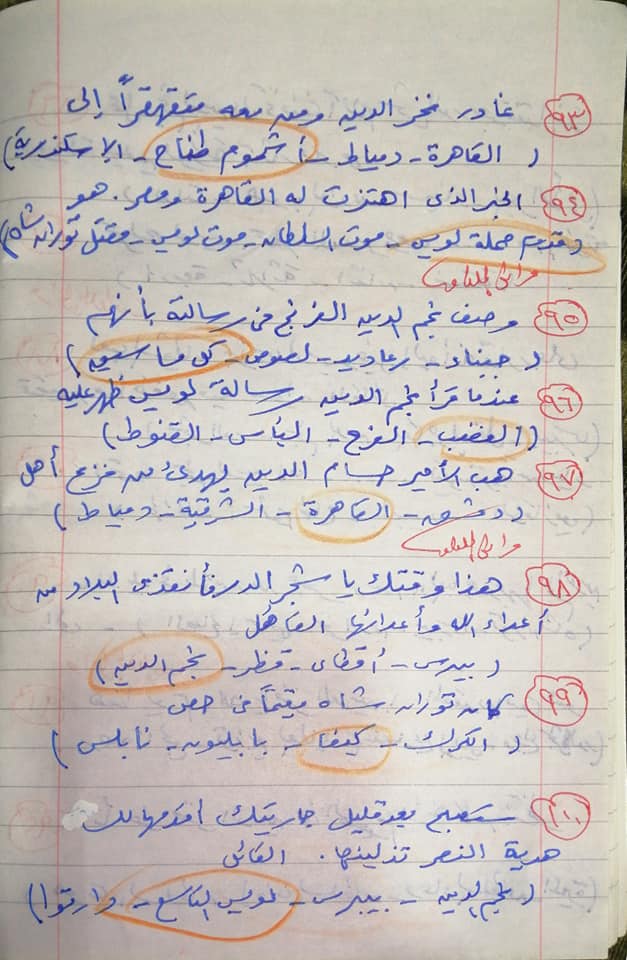 ٩٣ غادر فخر الدين ومن معه متقهقراً إلى
( القاهرة - دمياط - أشموم طناح - الإسكندرية )
٩٤ الخبر الذى اهتزت له القاهرة ومصر . هو
( قدوم حملة لويس - موت السلطان - موت لويس - مقتل توران شاه )
٩٥ وصف نجم الدين الفرنج فى رسالته بأنهم
( جبناء - رعاديد - لصوص - كل ما سبق )
٩٦ عندما قرأ نجم الدين رسالة لويس ظهر عليه
( الغضب - الفرح - اليأس - القنوط )
٩٧ هب الأمير حسام الدين يهدئ من فزع أهل
( دمشق - القاهرة - الشرقية - دمياط )
٩٨ هذا وقتك يا شجر الدر فأنقذى البلاد من
أعداء الله وأعدائها القائل
( بيبرس - أقطاى - قطز - نجم الدين )
٩٩ كان توران شاه مقيماً فى حصن
( الكرك - كيفا - بابليون - نابلس )
١٠٠ ستصبح بعد قليل جاريتك أقدمها لك
هدية النصر تذلينها . القائل
( نجم الدين - بيبرس - لويس التاسع - وارتوا )